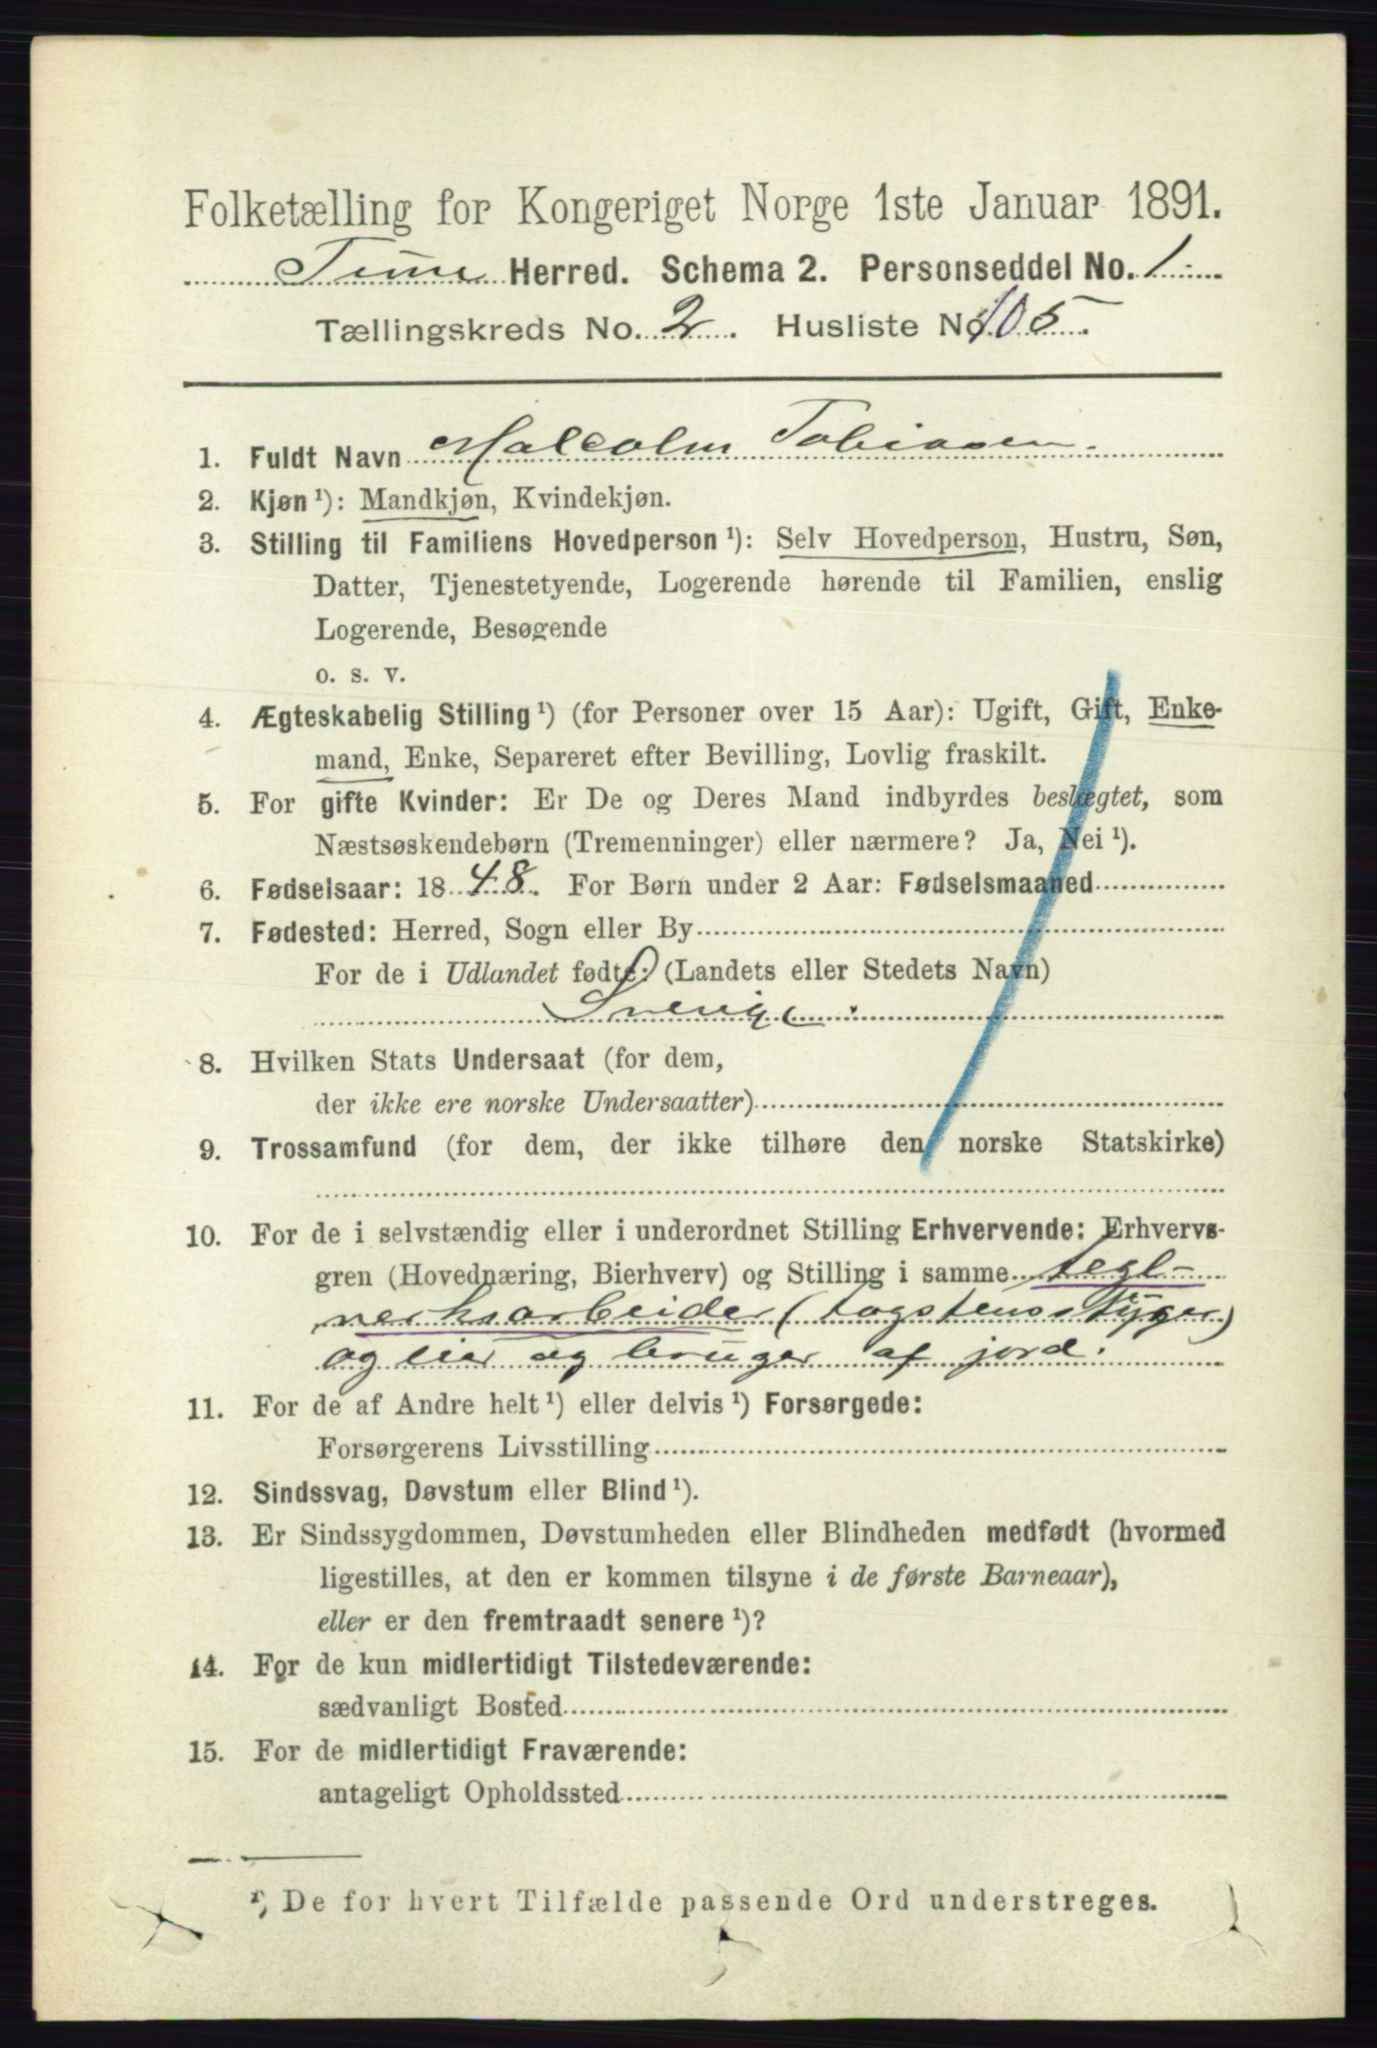 Folketælling for Kongeriget Norge 1ste Januar 1891.
Tune Herred. Schema 2. Personseddel No. 1
Tællingskreds No. 2. Husliste No. 105.
1. Fuldt Navn Malcolm Tobiasen.
2. Kjøn ¹): Mandkjøn, Kvindekjøn.
3. Stilling til Familiens Hovedperson ¹): Selv Hovedperson, Hustru, Søn,
Datter, Tjenestetyende, Logerende hørende til Familien, enslig
Logerende, Besøgende
o. s. v.
4. Ægteskabelig Stilling ¹) (for Personer over 15 Aar): Ugift, Gift, Enke-
mand, Enke, Separeret efter Bevilling, Lovlig fraskilt.
5. For gifte Kvinder: Er De og Deres Mand indbyrdes beslægtet, som
Næstsøskendebørn (Tremenninger) eller nærmere? Ja, Nei ¹).
6. Fødselsaar: 1848. For Børn under 2 Aar: Fødselsmaaned
7. Fødested: Herred, Sogn eller By
For de i Udlandet fødte: (Landets eller Stedets Navn)
Sverige.
8. Hvilken Stats Undersaat (for dem,
der ikke ere norske Undersaatter)
9. Trossamfund (for dem, der ikke tilhøre den norske Statskirke)
10. For de i selvstændig eller i underordnet Stilling Erhvervende: Erhvervs-
gren (Hovednæring, Bierhverv) og Stilling i samme tegl-
verksarbeider (tagstensstyger)
og eier og bruger af jord.
11. For de af Andre helt ¹) eller delvis ¹) Forsørgede:
Forsørgerens Livsstilling
12. Sindssvag, Døvstum eller Blind ¹).
13. Er Sindssygdommen, Døvstumheden eller Blindheden medfødt (hvormed
ligestilles, at den er kommen tilsyne i de første Barneaar),
eller er den fremtraadt senere ¹)?
14. For de kun midlertidigt Tilstedeværende:
sædvanligt Bosted
15. For de midlertidigt Fraværende:
antageligt Opholdssted
¹) De for hvert Tilfælde passende Ord understreges.